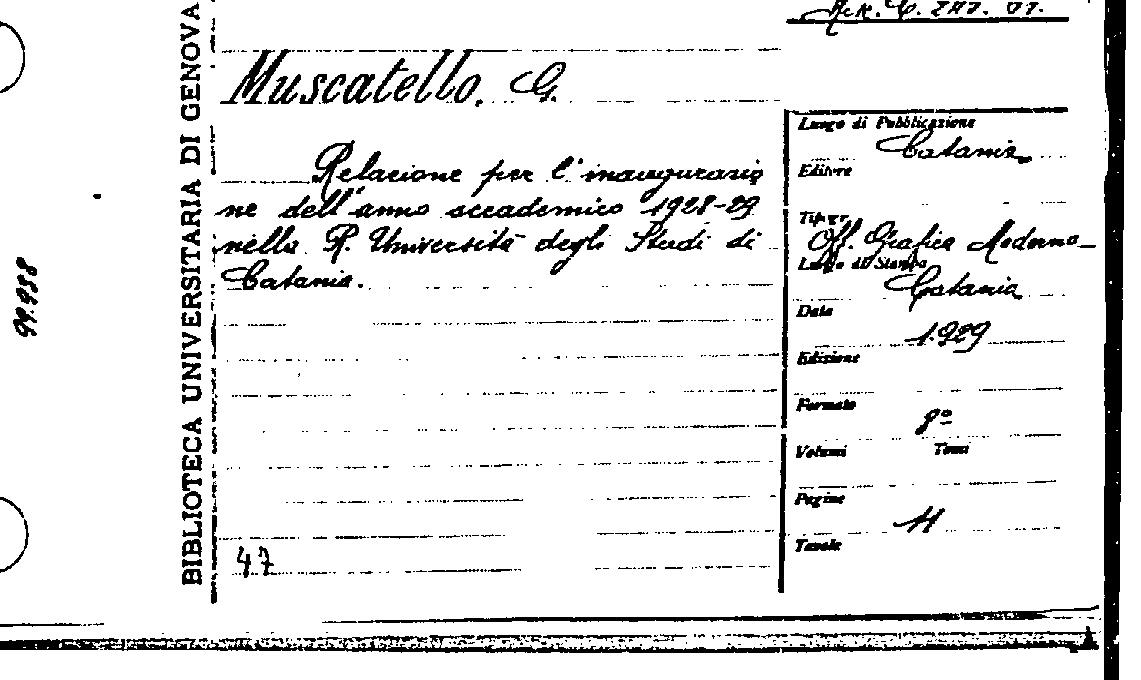 BIBLIOTECA UNIVERSITARIA DI GENOVA
Muscatello, G.
Relazione per l'inaugurazio
ne dell'anno accademico 1928-29
nella R. Università degli Studi di
Catania.
47
Luogo di Pubblicazione
Catania
Editore
Tipogr.
Off. Grafica Moderna
Luogo di Stampa
Catania
Data
1929
Edizione
Formato
8º
Volumi Tomi
Pagine
11
Tavole
99.938